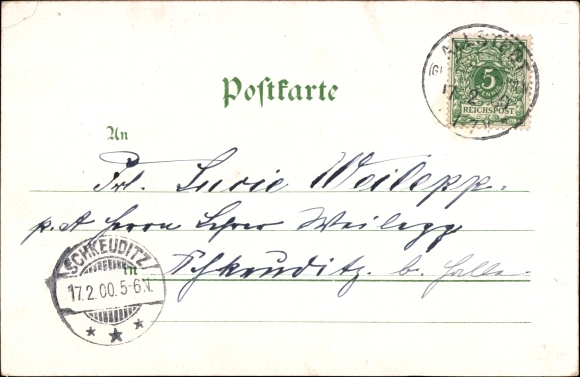 Postkarte
5
REICHSPOST
17.2.
An
Frl. Lucie Weilepp.
p. A Herrn Lehrer Weilepp
in Schkeuditz b. Halle.
SCHKEUDITZ
17.2.00.5-6N.